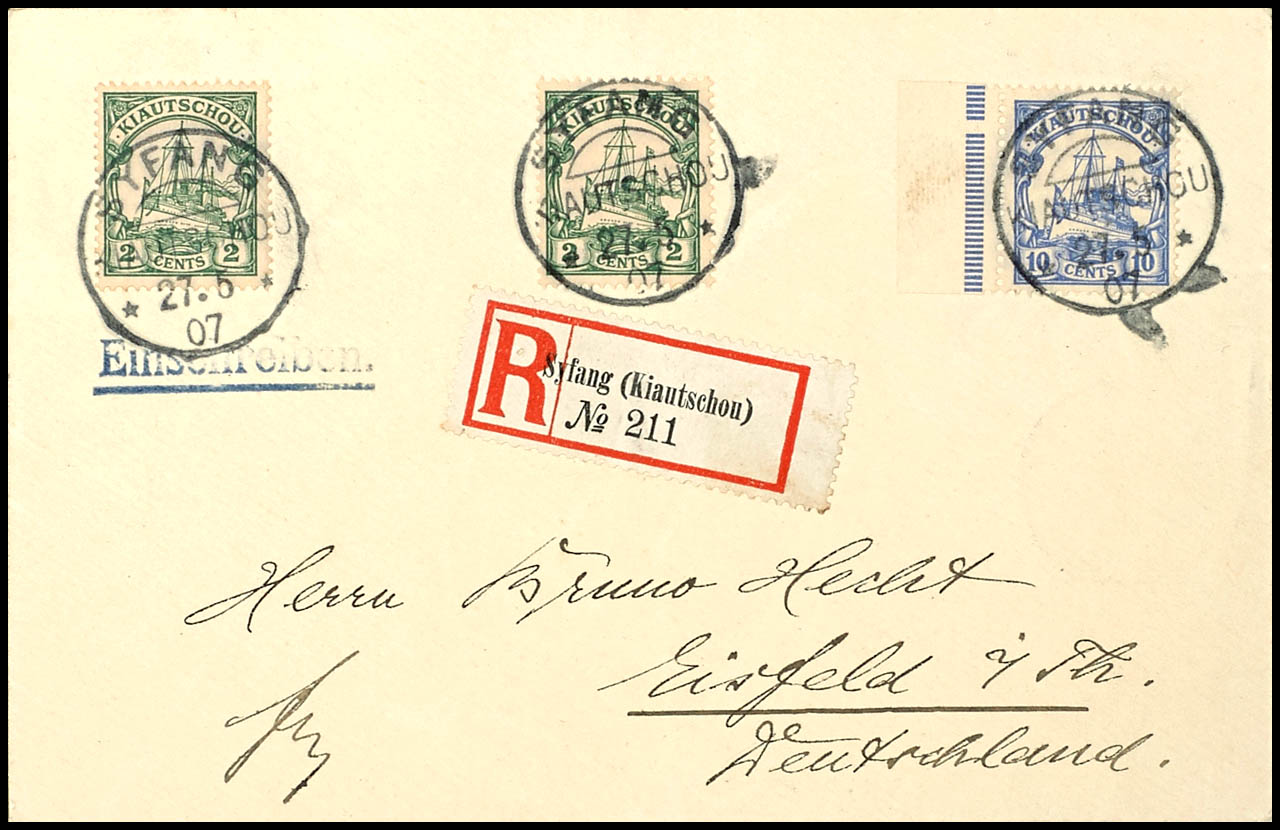 KIAUTSCHOU
2 2
CENTS
SYFANG
27.6
07
KIAUTSCHOU
2 2
CENTS
SYFANG
KIAUTSCHOU
07
KIAUTSCHOU
10 10
CENTS
SYFANG
KIAUTSCHOU
07
Einschreiben.
R Syfang (Kiautschou)
No 211
Herrn Bruno Hecht
Eisfeld i/Th.
Deutschland.